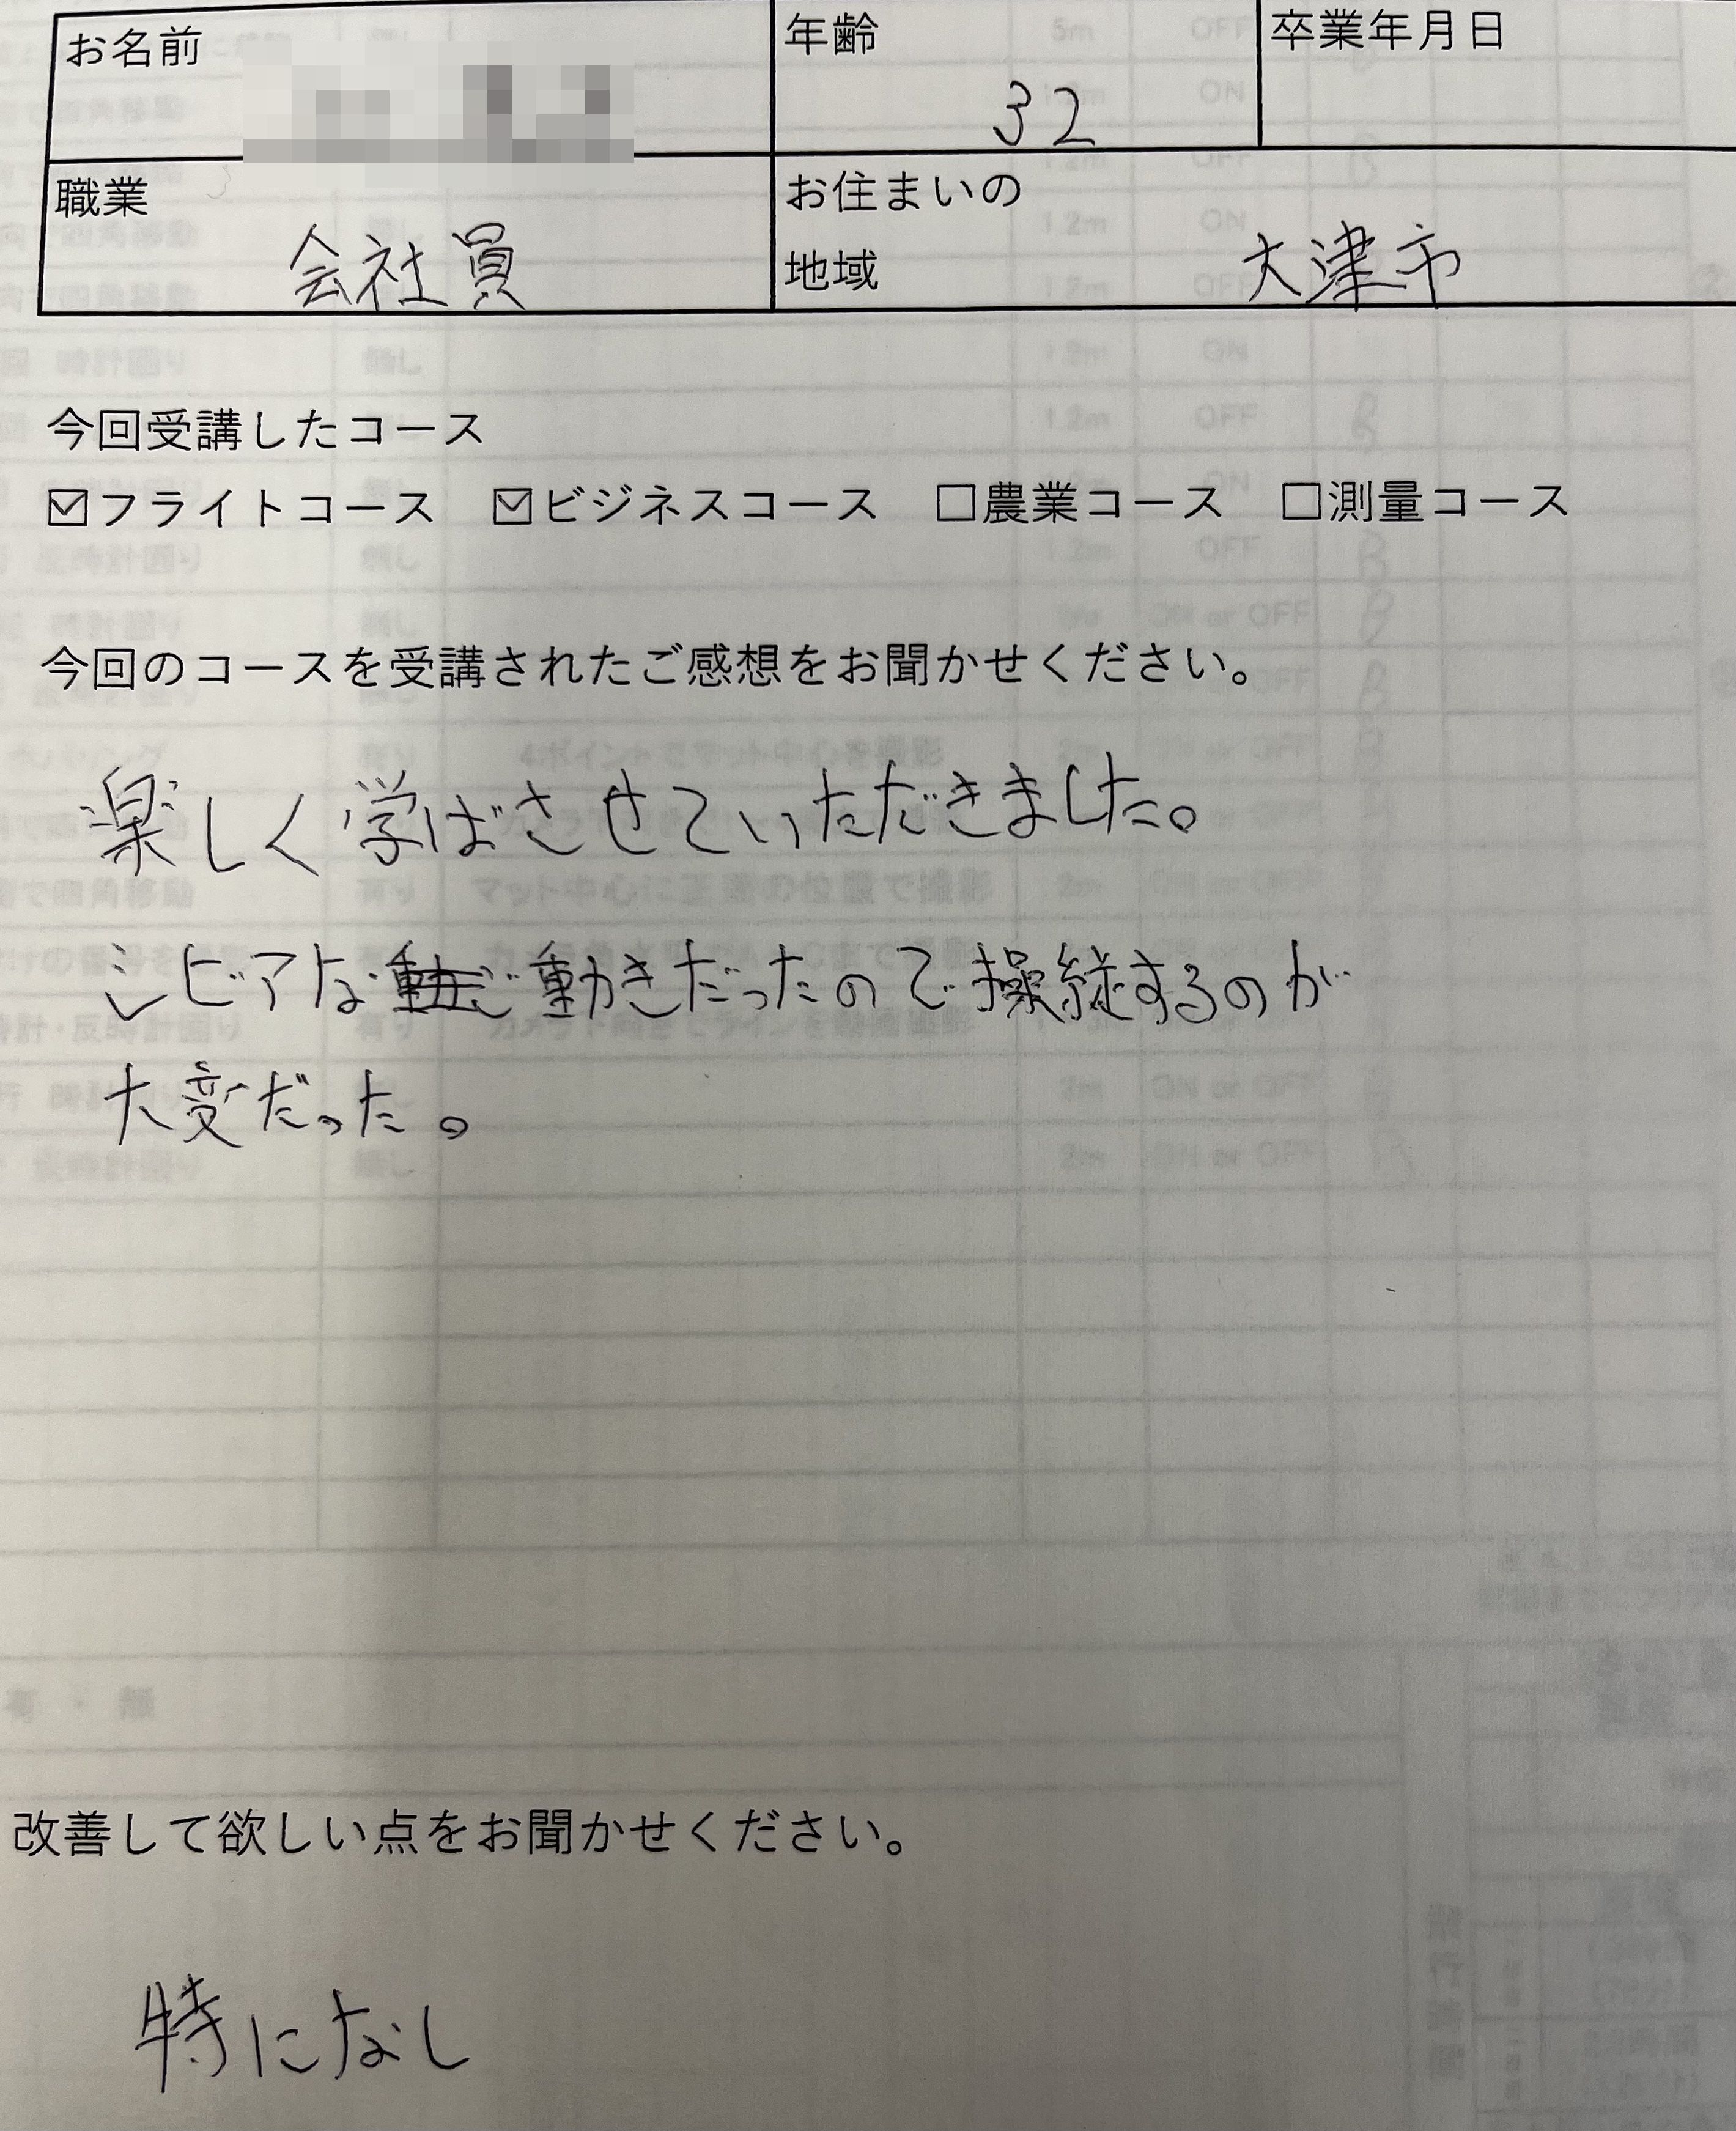 お名前
年齢
32
卒業年月日
職業
会社員
お住まいの
地域
大津市
今回受講したコース
☑フライトコース ☑ビジネスコース □農業コース □測量コース
今回のコースを受講されたご感想をお聞かせください。
楽しく学ばさせていただきました。
シビアな動きだったので操縦するのが
大変だった。
改善して欲しい点をお聞かせください。
特になし